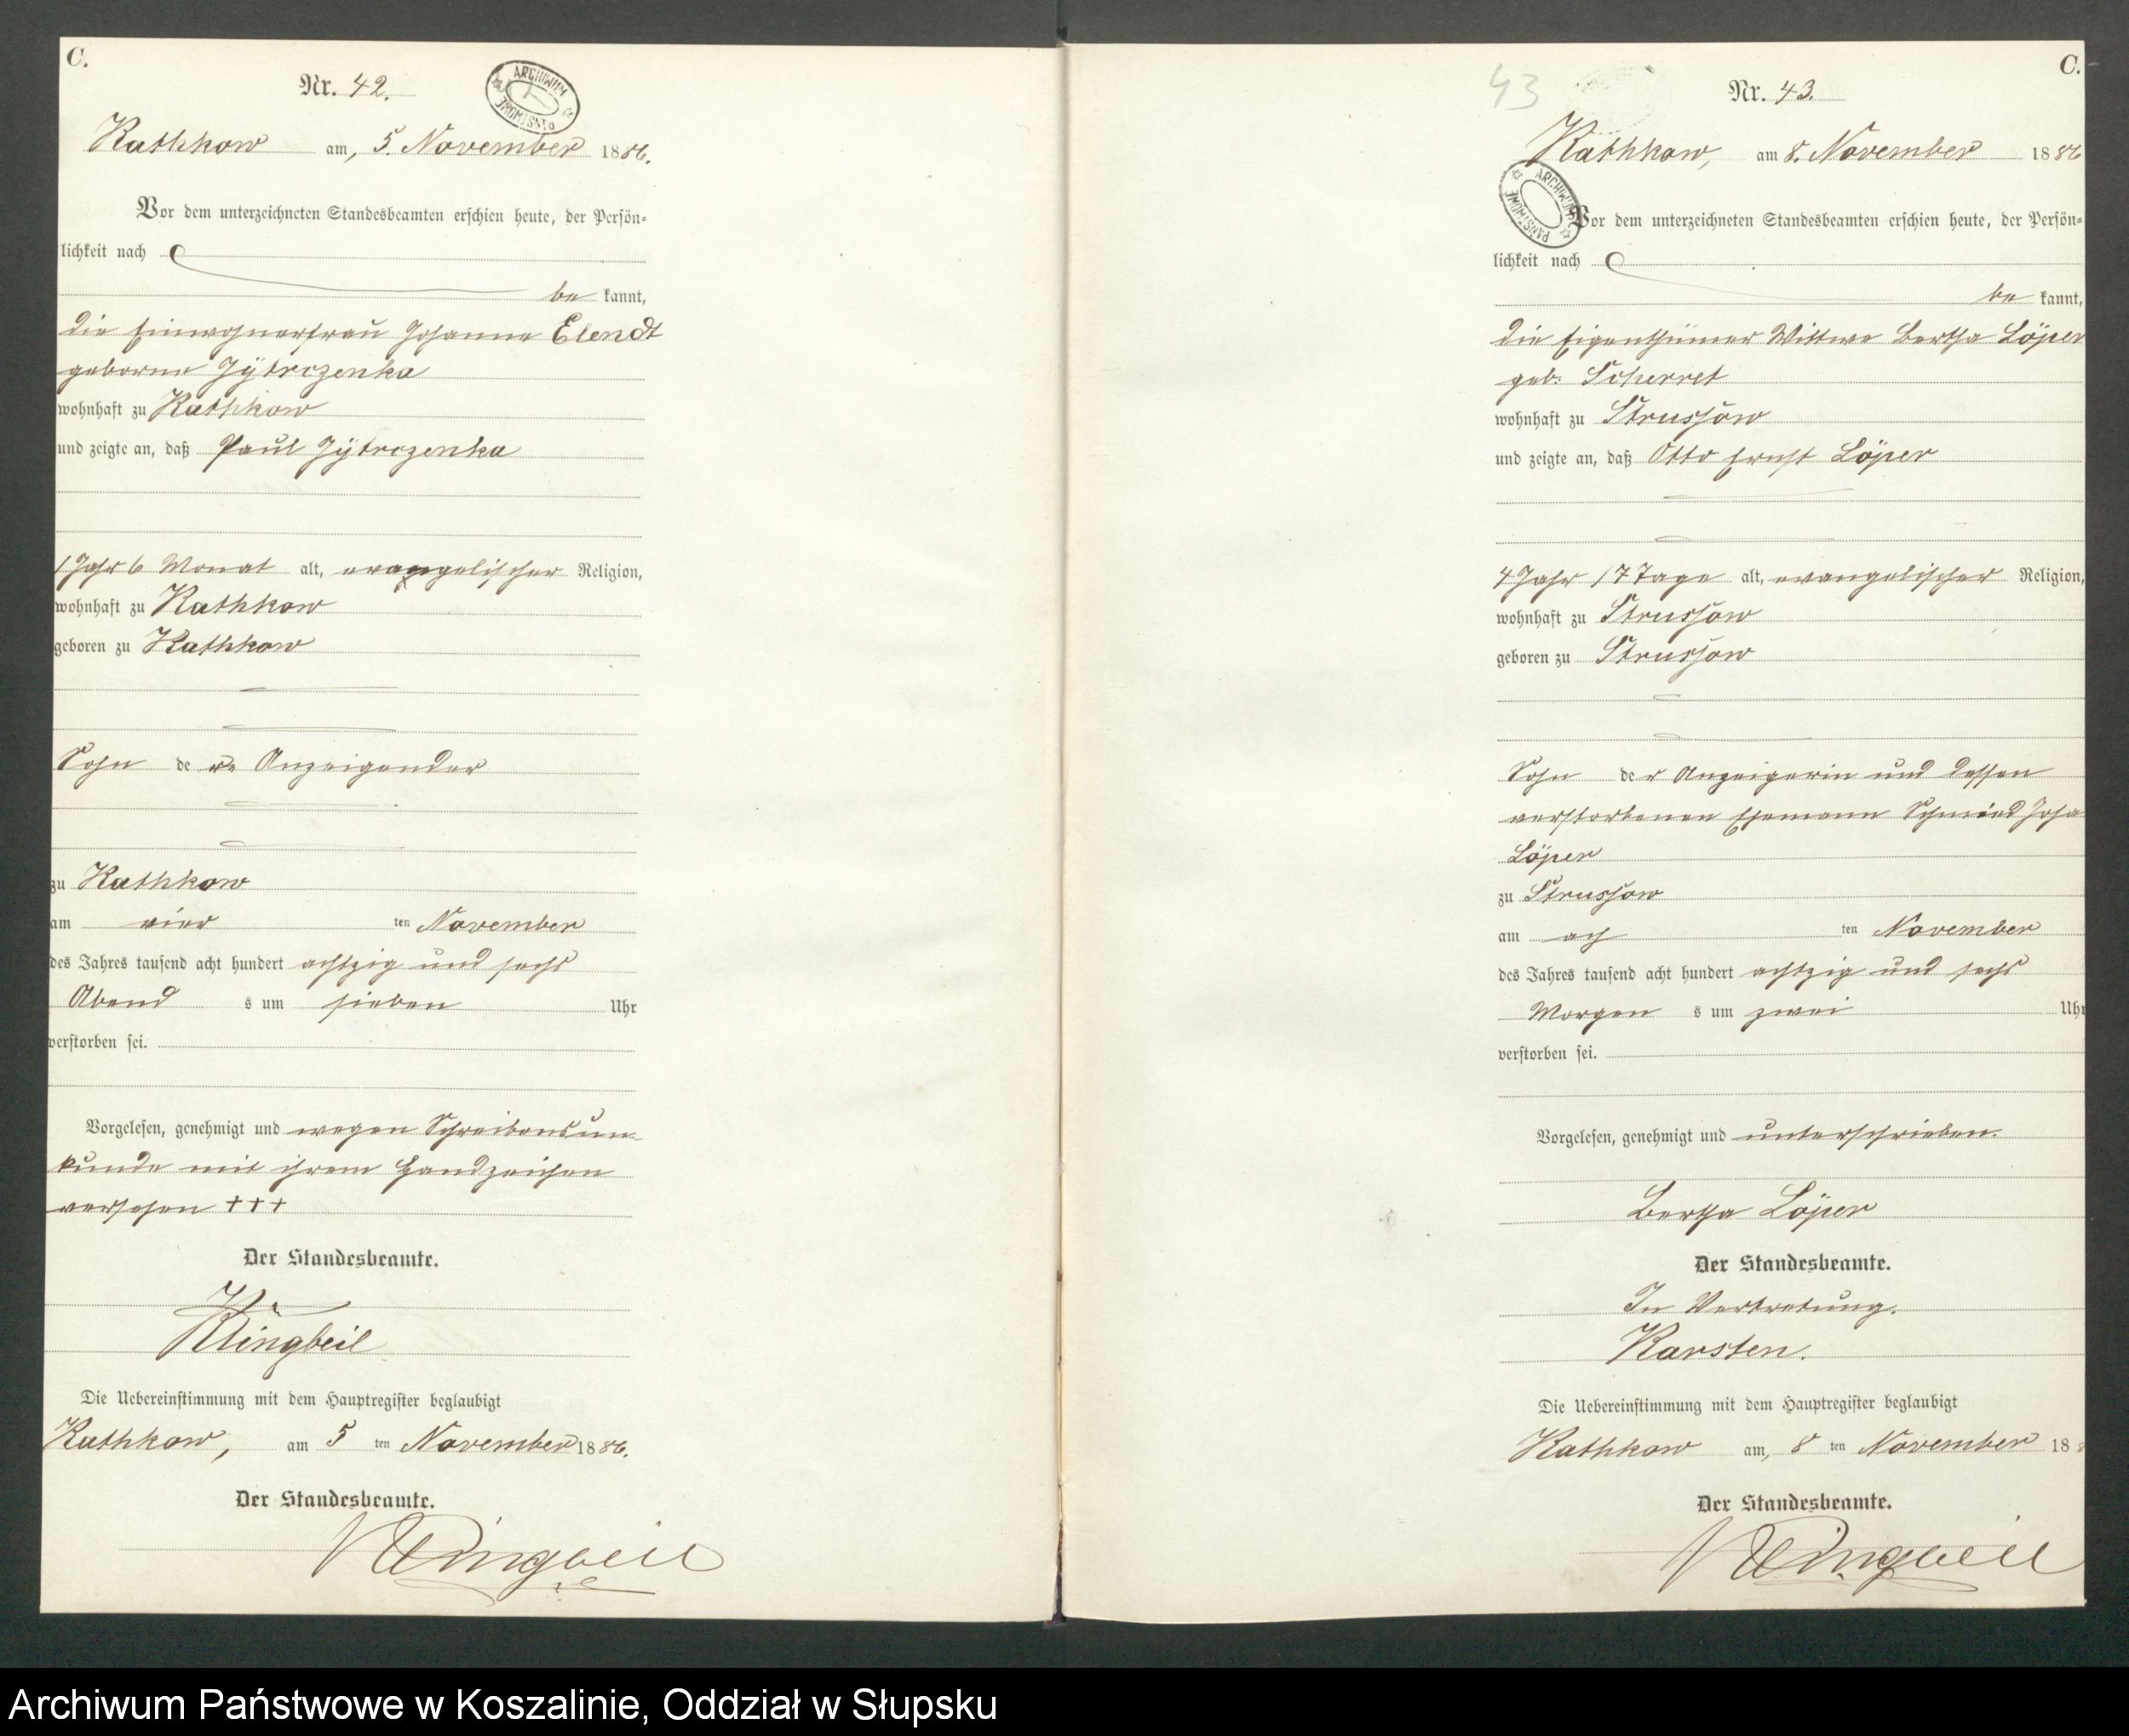 C.
Nr. 42.
ARCHIWUM PAŃSTWOWE
Kathkow am, 5. November 1886.
Vor dem unterzeichneten Standesbeamten erschien heute, der Persön-
lichkeit nach
be kannt,
die Einwohnerfrau Johanne Elendt
geborne
wohnhaft zu Kathkow
und zeigte an, daß Paul
1 Jahr 6 Monat alt, evangelischer Religion,
wohnhaft zu Kathkow
geboren zu Kathkow
Sohn de r Anzeigender
zu Kathkow
am vier ten November
des Jahres tausend acht hundert achtzig und sechs
Abend s um sieben Uhr
verstorben sei.
Vorgelesen, genehmigt und wegen Schreibensun-
kunde mit ihrem Handzeichen
versehen +++
Der Standesbeamte.
Klingbeil
Die Uebereinstimmung mit dem Hauptregister beglaubigt
Kathkow, am 5 ten November 1886.
Der Standesbeamte.
Klingbeil
C.
43
Nr. 43.
ARCHIWUM PAŃSTWOWE
Kathkow, am 8. November 1886
Vor dem unterzeichneten Standesbeamten erschien heute, der Persön-
lichkeit nach
be kannt,
die Eigenthümer Wittwe Bertha Löper
geb. Scherret
wohnhaft zu Strussow
und zeigte an, daß Otto Ernst Löper
4 Jahr 17 Tage alt, evangelischer Religion,
wohnhaft zu Strussow
geboren zu Strussow
Sohn der Anzeigerin und dessen
verstorbenen Ehemann Schmied Joha
Löper
zu Strussow
am ach ten November
des Jahres tausend acht hundert achtzig und sechs
Morgen s um zwei Uhr
verstorben sei.
Vorgelesen, genehmigt und unterschrieben.
Bertha Löper
Der Standesbeamte.
In Vertretung.
Karsten.
Die Uebereinstimmung mit dem Hauptregister beglaubigt
Kathkow am, 8 ten November 18
Der Standesbeamte.
Klingbeil
Archiwum Państwowe w Koszalinie, Oddział w Słupsku